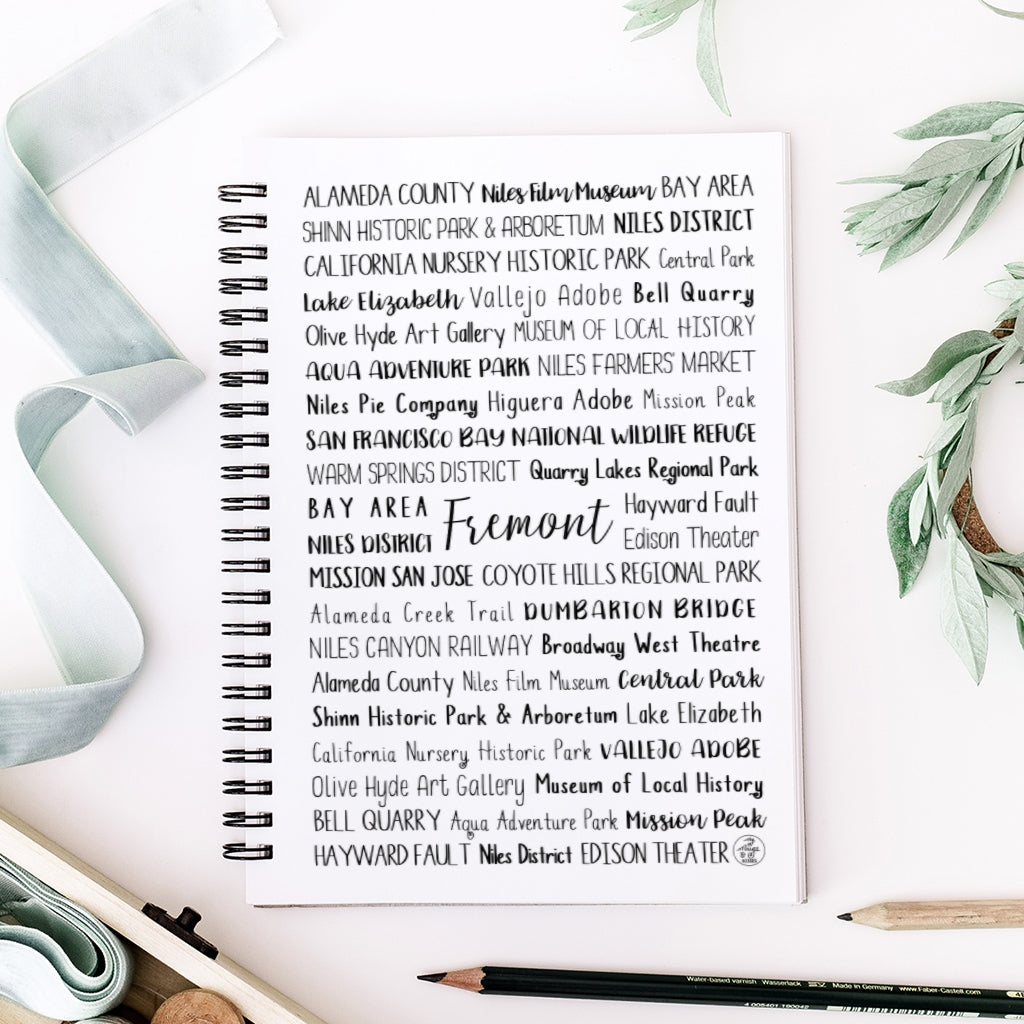 ALAMEDA COUNTY Niles Film Museum BAY AREA
SHINN HISTORIC PARK & ARBORETUM NILES DISTRICT
CALIFORNIA NURSERY HISTORIC PARK Central Park
Lake Elizabeth Vallejo Adobe Bell Quarry
Olive Hyde Art Gallery MUSEUM OF LOCAL HISTORY
AQUA ADVENTURE PARK NILES FARMERS' MARKET
Niles Pie Company Higuera Adobe Mission Peak
SAN FRANCISCO BAY NATIONAL WILDLIFE REFUGE
WARM SPRINGS DISTRICT Quarry Lakes Regional Park
BAY AREA
NILES DISTRICT
Fremont
Hayward Fault
Edison Theater
MISSION SAN JOSE COYOTE HILLS REGIONAL PARK
Alameda Creek Trail DUMBARTON BRIDGE
NILES CANYON RAILWAY Broadway West Theatre
Alameda County Niles Film Museum Central Park
Shinn Historic Park & Arboretum Lake Elizabeth
California Nursery Historic Park VALLEJO ADOBE
Olive Hyde Art Gallery Museum of Local History
BELL QUARRY Aqua Adventure Park Mission Peak
HAYWARD FAULT Niles District EDISON THEATER
Water-based varnish Wasserlack Made in Germany www.Faber-Castell.com
4 005401 190042